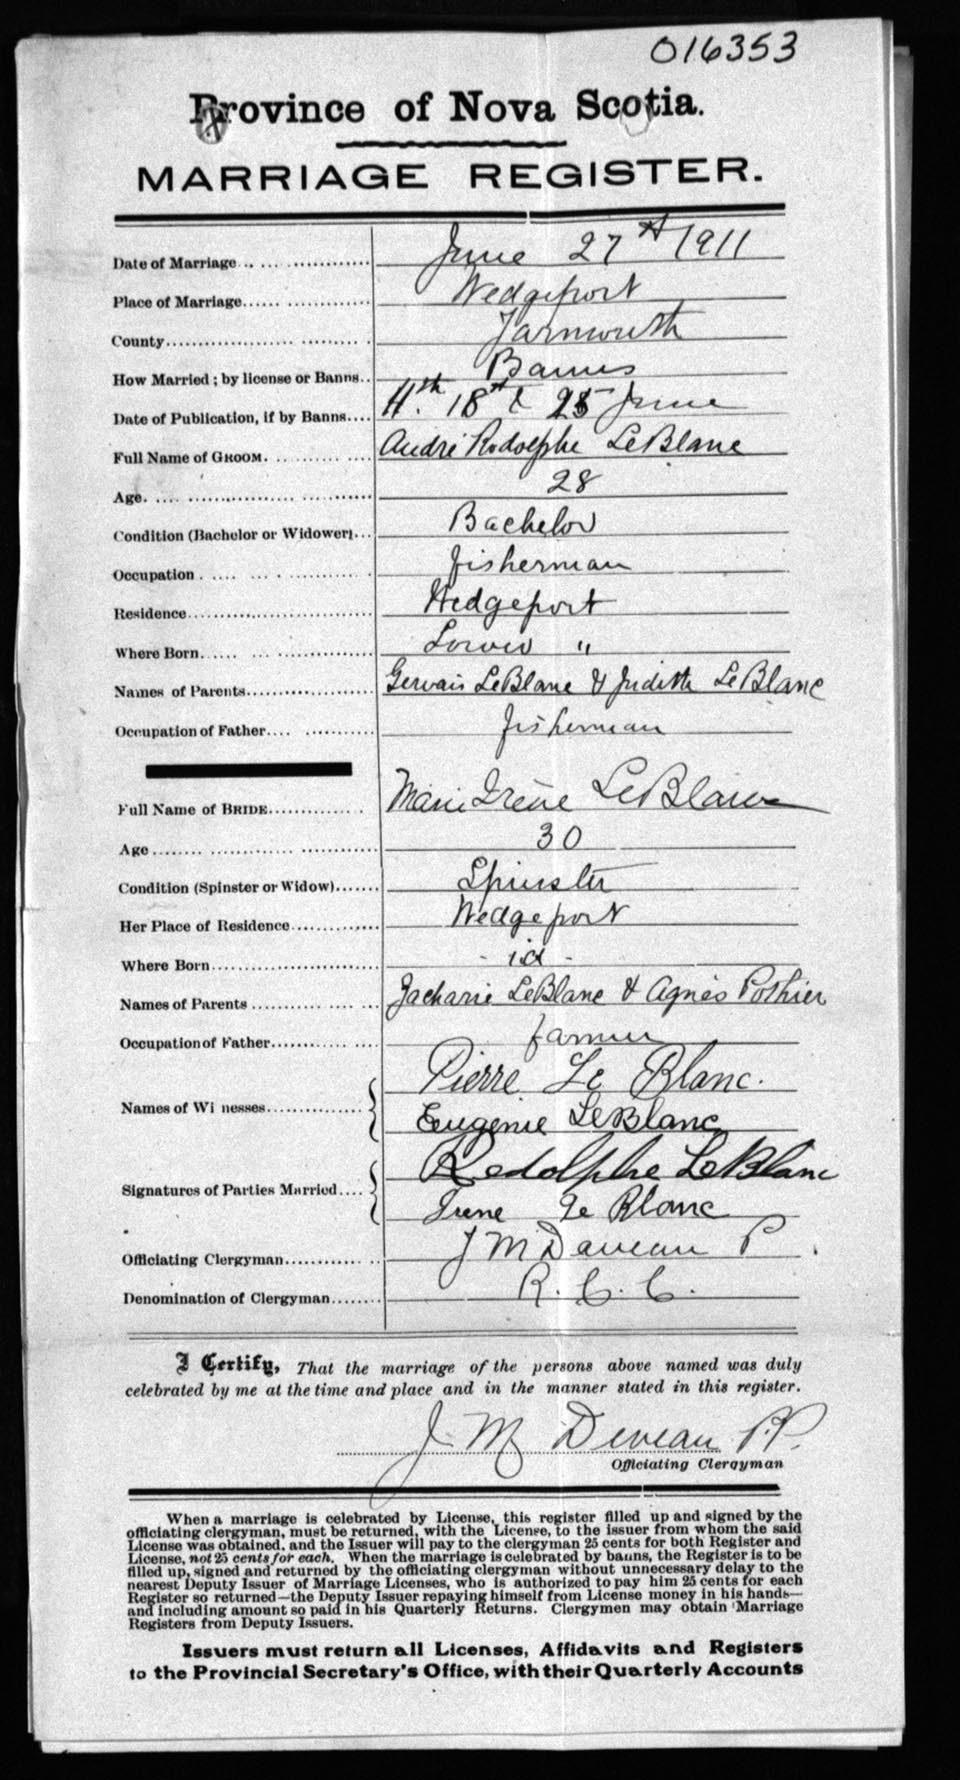 016353
Province of Nova Scotia.
MARRIAGE REGISTER.
Date of Marriage June 27th 1911
Place of Marriage Wedgeport
County Yarmouth
How Married; by license or Banns Banns
Date of Publication, if by Banns 11th. 18th & 25 June
Full Name of GROOM. André Rodolphe LeBlanc
Age. 28
Condition (Bachelor or Widower) Bachelor
Occupation fisherman
Residence Wedgeport
Where Born Lower "
Names of Parents Gervais LeBlanc & Judith LeBlanc
Occupation of Father fisherman
Full Name of BRIDE Marie Irène LeBlanc
Age 30
Condition (Spinster or Widow) Spinster
Her Place of Residence Wedgeport
Where Born - id -
Names of Parents Zacharie LeBlanc & Agnès Pothier
Occupation of Father farmer
Pierre Le Blanc.
Names of Wi nesses
Eugenie LeBlanc
Rodolphe LeBlanc
Signatures of Parties Married
Irene Le Blanc
Officiating Clergyman J M Daveau P
Denomination of Clergyman R. C. C.
I Certify, That the marriage of the persons above named was duly
celebrated by me at the time and place and in the manner stated in this register.
J. M Deveau P.P.
Officiating Clergyman
When a marriage is celebrated by License, this register filled up and signed by the
officiating clergyman, must be returned, with the License, to the issuer from whom the said
License was obtained, and the Issuer will pay to the clergyman 25 cents for both Register and
License, not 25 cents for each. When the marriage is celebrated by banns, the Register is to be
filled up, signed and returned by the officiating clergyman without unnecessary delay to the
nearest Deputy Issuer of Marriage Licenses, who is authorized to pay him 25 cents for each
Register so returned—the Deputy Issuer repaying himself from License money in his hands—
and including amount so paid in his Quarterly Returns. Clergymen may obtain Marriage
Registers from Deputy Issuers.
Issuers must return all Licenses, Affidavits and Registers
to the Provincial Secretary's Office, with their Quarterly Accounts